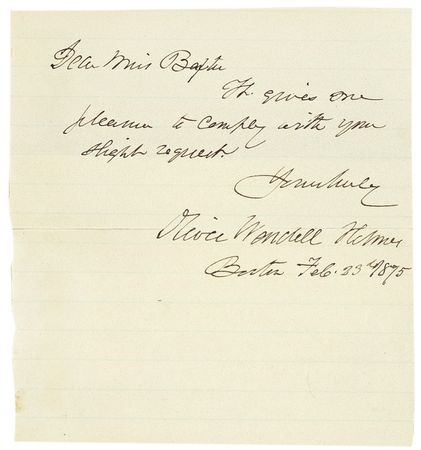 Dear Miss Baxter
It gives me
pleasure to comply with your
slight request.
Yours truly
Oliver Wendell Holmes
Boston Feb. 23d 1875